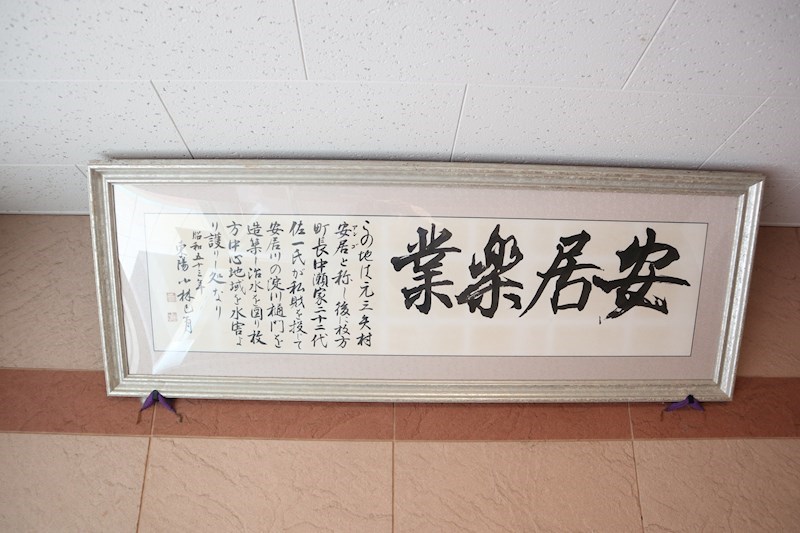 安居樂業
この地は元三矢村
安居と称し後に枚方
アンゴ
町長中瀬家二十二代
佐一氏が私財を投じて
安居川の淀川樋門を
造築し治水を図り枚
方中心地域を水害よ
り護りし処なり
昭和五十三年
小林